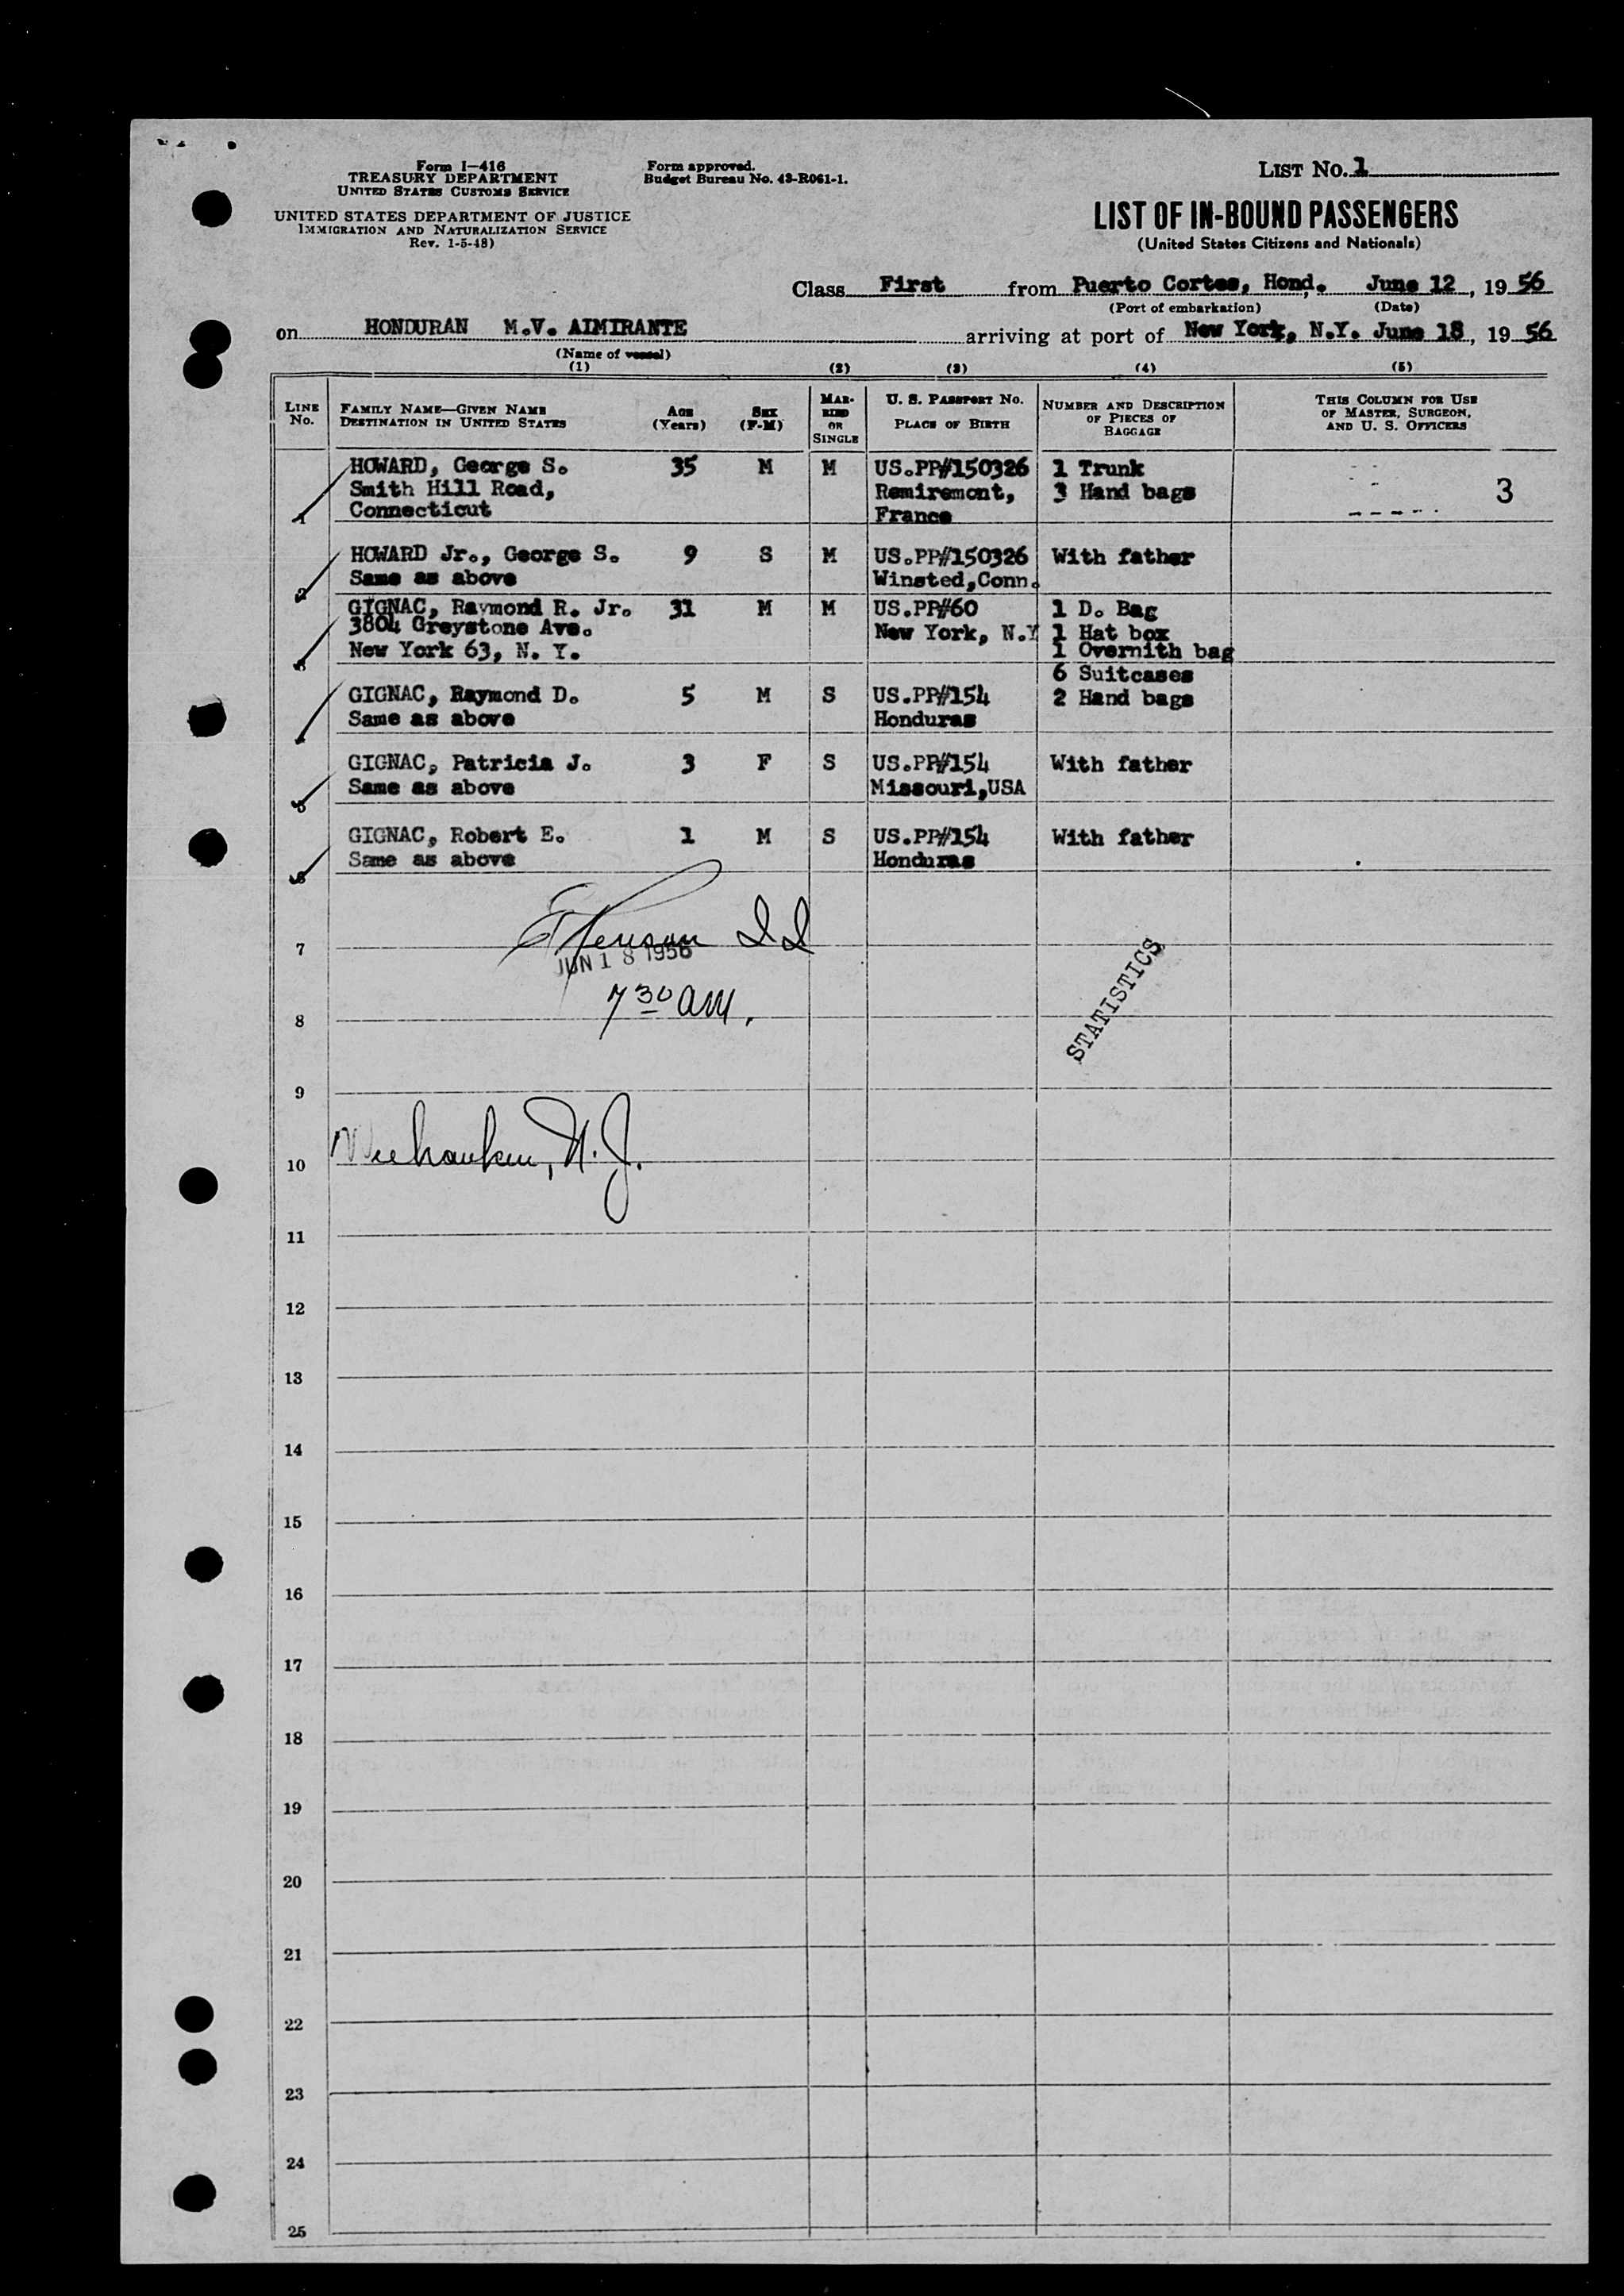 Form I-416
TREASURY DEPARTMENT
UNITED STATES CUSTOMS SERVICE
UNITED STATES DEPARTMENT OF JUSTICE
IMMIGRATION AND NATURALIZATION SERVICE
Rev. 1-5-48)
Form approved.
Budget Bureau No. 43-R061-1.
LIST No. 1
LIST OF IN-BOUND PASSENGERS
(United States Citizens and Nationals)
Class First from Puerto Cortes, Hond. June 12, 19 56
(Port of embarkation) (Date)
on HONDURAN M.V. AIMIRANTE arriving at port of New York, N.Y. June 18, 19 56
(Name of vessel)
(1) (2) (3) (4) (5)
LINE No. FAMILY NAME—GIVEN NAME DESTINATION IN UNITED STATES AGE (Years) SEX (F-M) MARRIED OR SINGLE U. S. PASSPORT No. PLACE OF BIRTH NUMBER AND DESCRIPTION OF PIECES OF BAGGAGE THIS COLUMN FOR USE OF MASTER, SURGEON, AND U. S. OFFICERS
HOWARD, George S. 35 M M US.PP#150326 1 Trunk
Smith Hill Road, Remiremont, 3 Hand bags 3
1 Connecticut France
HOWARD Jr., George S. 9 S M US.PP#150326 With father
2 Same as above Winsted,Conn.
GIGNAC, Raymond R. Jr. 31 M M US.PP#60 1 D. Bag
3804 Greystone Ave. New York, N.Y 1 Hat box
3 New York 63, N. Y. 1 Overnith bag
6 Suitcases
GIGNAC, Raymond D. 5 M S US.PP#154 2 Hand bags
4 Same as above Honduras
GIGNAC, Patricia J. 3 F S US.PP#154 With father
5 Same as above Missouri,USA
GIGNAC, Robert E. 1 M S US.PP#154 With father
6 Same as above Honduras
7
JUN 18 1956
7 30 AM.
8
STATISTICS
9
10 Weehawken, N.J.
11
12
13
14
15
16
17
18
19
20
21
22
23
24
25